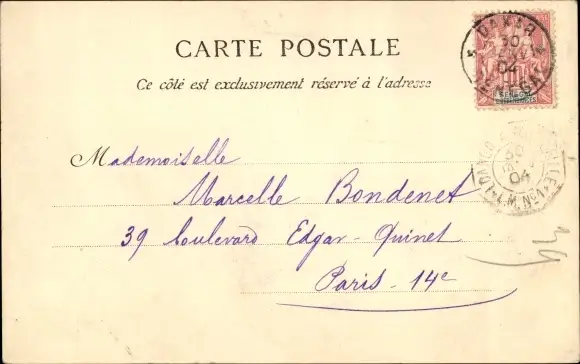 CARTE POSTALE
Ce côté est exclusivement réservé à l'adresse
DAKAR
30
04
SÉNÉGAL
Mademoiselle
Marcelle Bondenet
39 boulevard Edgar-Quinet
Paris-14e
30
04